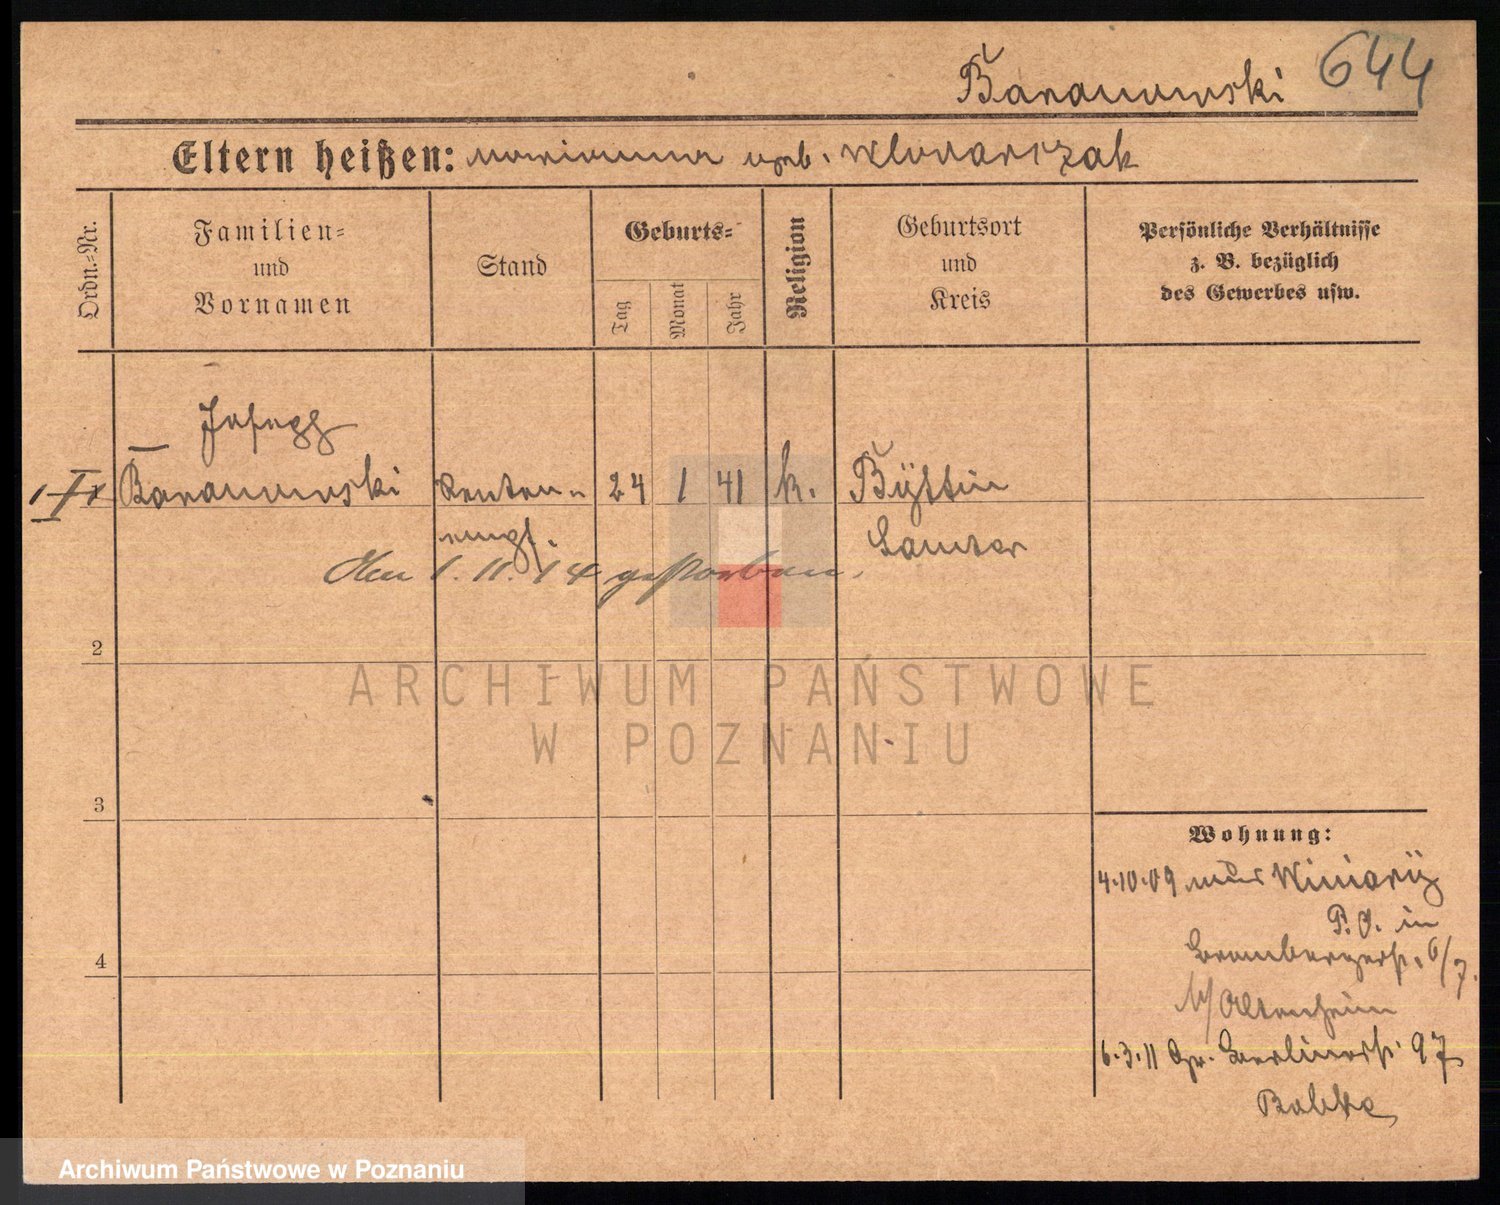 Baranowski 644
Eltern heißen: Marianna geb. Wlodarczak
Ordn.-Nr.
Familien-
und
Vornamen
Stand
Geburts-
Tag
Monat
Jahr
Religion
Geburtsort
und
Kreis
Persönliche Verhältnisse
z. B. bezüglich
des Gewerbes usw.
Josef
Baranowski Renten- 24 1 41 k. Byttin
empf. Samter
Den 1.11.14 gestorben.
2
3
4
Wohnung:
4.10.09 aus Winiary
P. O. in
Brombergerstr. 6/7.
Altenheim
6.3.11 Gr. Berlinerstr. 97
Babke
ARCHIWUM PAŃSTWOWE
W POZNANIU
Archiwum Państwowe w Poznaniu